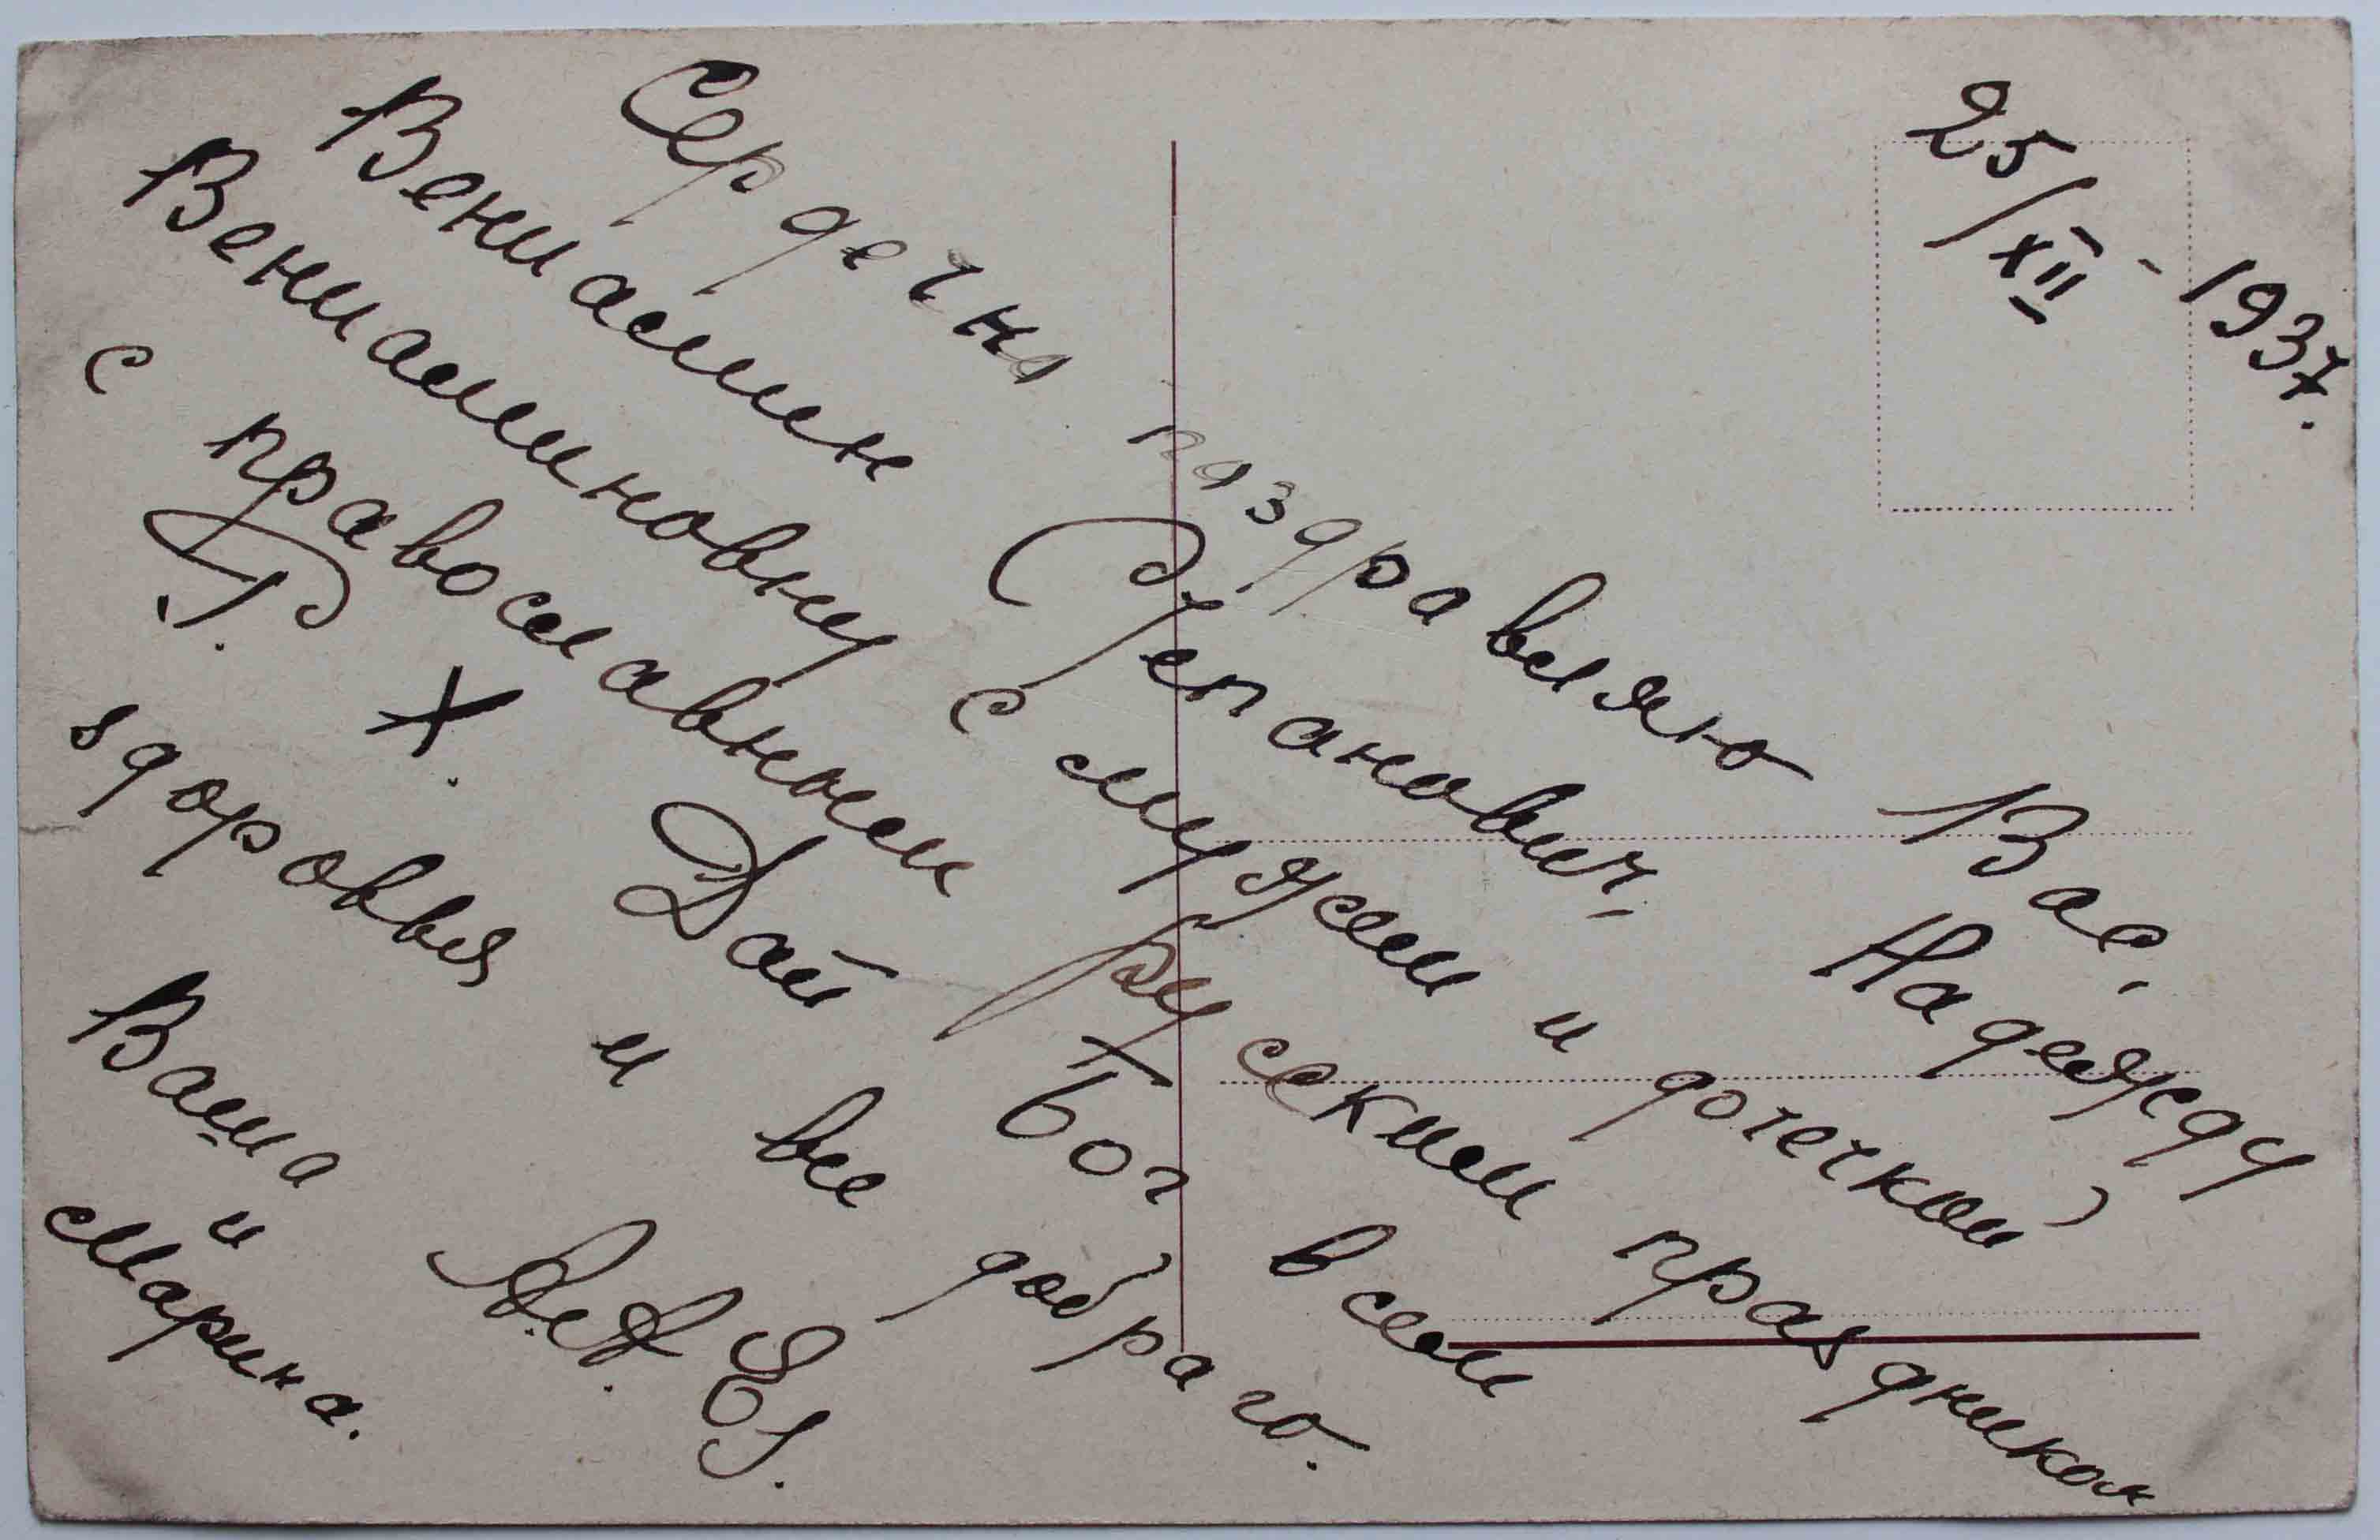 25/XII - 1937.
Сердечно поздравляю Вас,
Вениамин Степанович, Надежду
Вениаминовну с мужем и дочечкой
с православным русским праздником
Р. Х. Дай Бог всем
здоровья и все добраго.
Ваша
и
Марина.